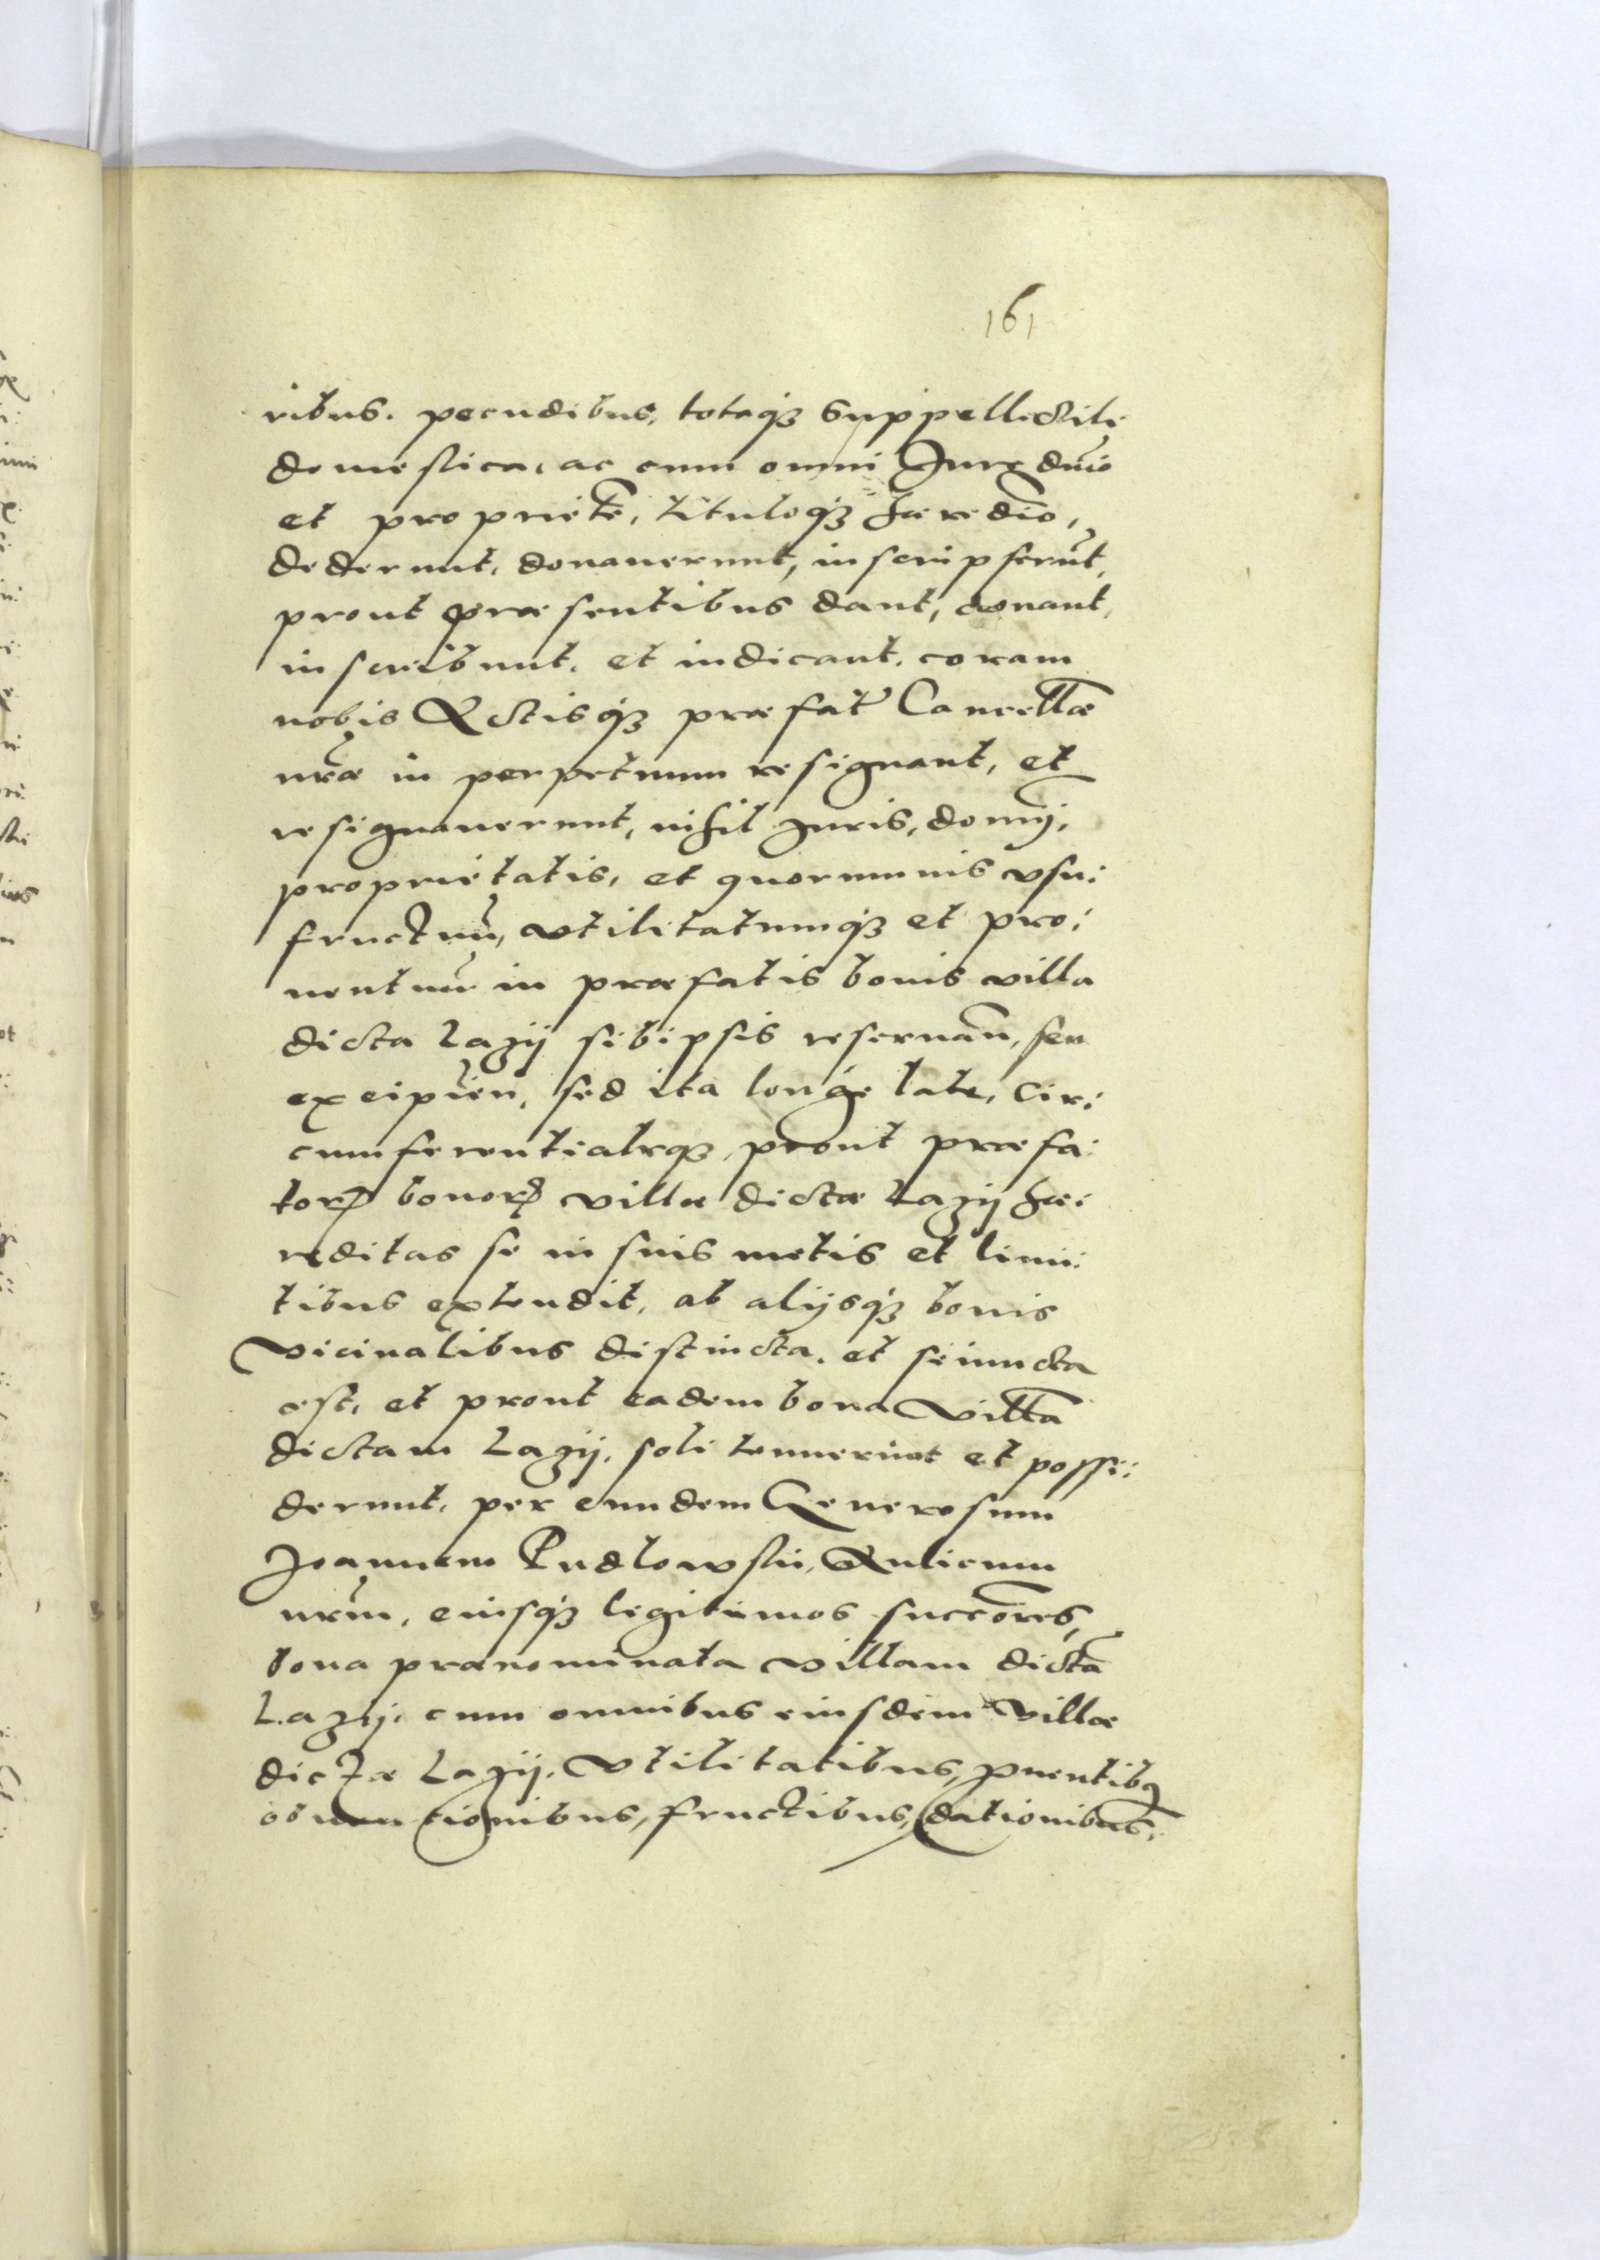 161
ribus. pecudibus, totaq3 suppellectili
domestica, ac cum omni Jure dnio
et propriete, tituloq3 haeredio,
dederunt, donaverunt, inscripserut,
prout praesentibus dant, donant,
inscribunt, et indicant, coram
nobis Actisq3 praefat Cancellae
nrae in perpetuum resignant, et
resignaverunt, nihil Juris, dominij,
proprietatis, et quorumvis vsu:
fructuu, vtilitatumq3 et pro:
ventuu in praefatis bonis villa
dicta Lazij sibi ipsis reservan, seu
excipien, sed ita longe late, Cir:
cumferentialrq3, prout praefa:
tor bonor villae dictae Lazij hae:
reditas se in suis metis et limi:
tibus extendit, ab alijsq3 bonis
vicinalibus distincta, et seiuncta
est, et prout eadem bona villa
dictam Lazij, soli tenuerunt et possi:
derunt, per eundem Generosum
Joannem Rudlowskii, Aulicum
nrum, eiusq3 legitimos succores,
bona praenominata villam dicta
Lazij, cum omnibus eiusdem villae
dictae Lazij, vtilitatibus, pventib9
obventionibus, fructibus, dationibus,